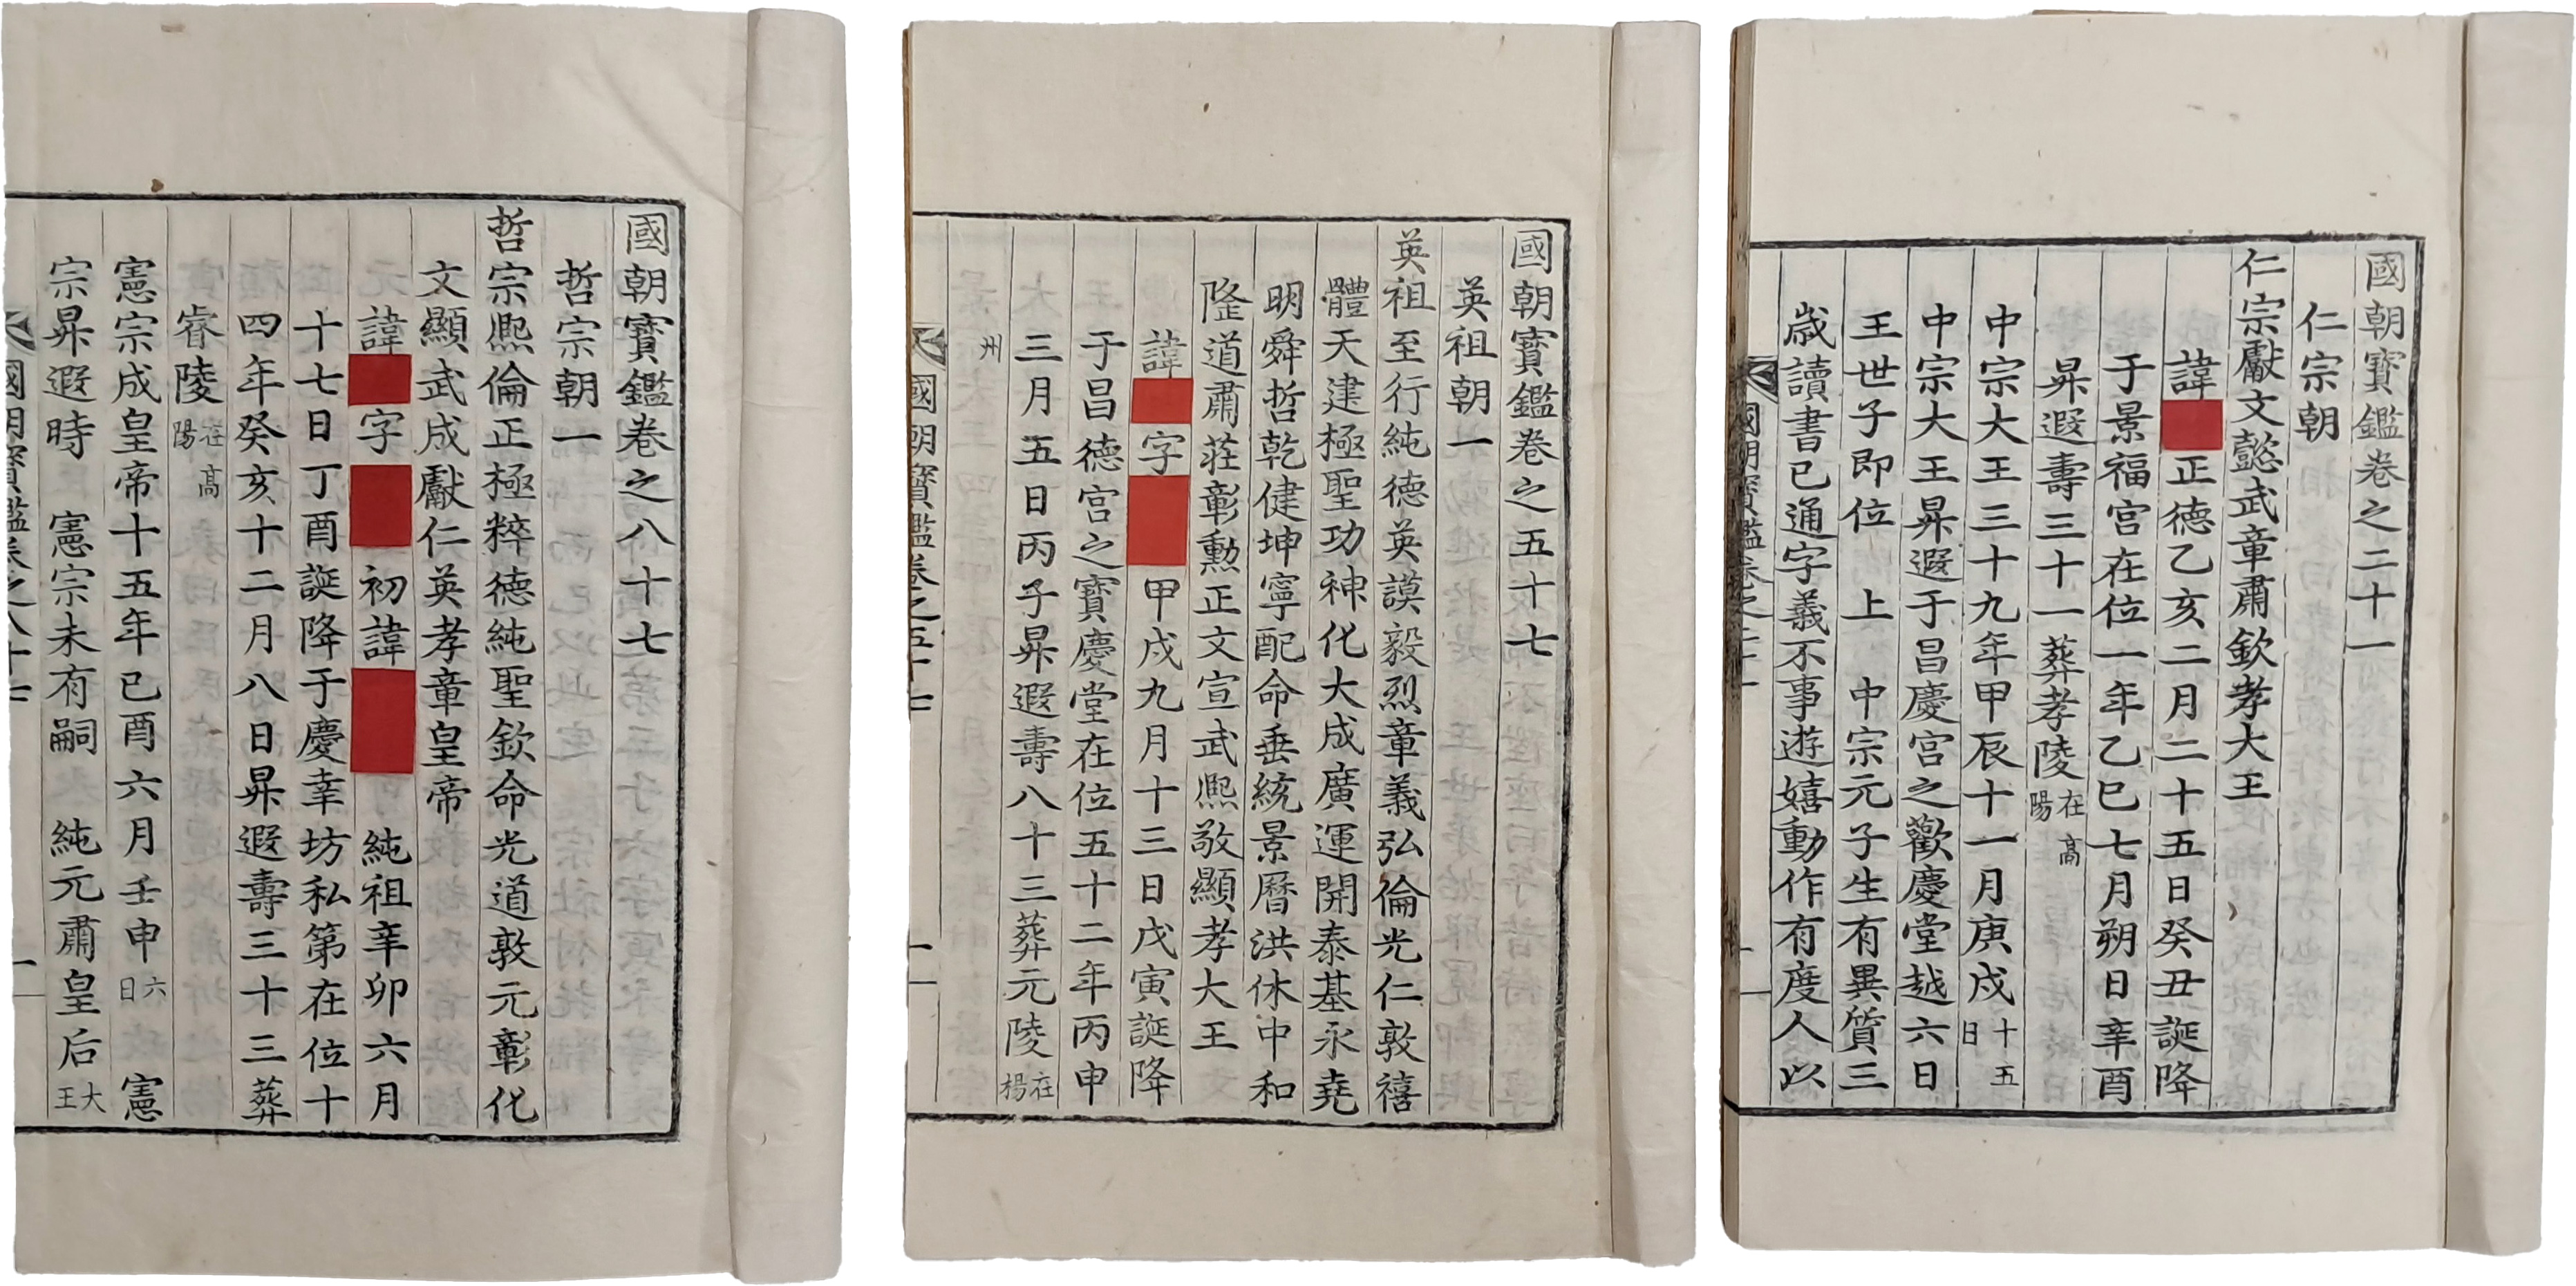 國朝寶鑑卷之二十一
仁宗朝
仁宗獻文懿武章肅欽孝大王
諱 正德乙亥二月二十五日癸丑誕降
于景福宮在位一年乙巳七月朔日辛酉
昇遐壽三十一葬孝陵在高陽
中宗大王三十九年甲辰十一月庚戌十五日
中宗大王昇遐于昌慶宮之歡慶堂越六日
王世子即位 上 中宗元子生有異質三
歲讀書已通字義不事遊嬉動作有度人以
國朝寶鑑卷之二十一 一
國朝寶鑑卷之五十七
英祖朝一
英祖至行純德英謨毅烈章義弘倫光仁敦禧
體天建極聖功神化大成廣運開泰基永堯
明舜哲乾健坤寧配命垂統景曆洪休中和
隆道肅莊彰勳正文宣武熙敬顯孝大王
諱 字 甲戌九月十三日戊寅誕降
于昌德宮之寶慶堂在位五十二年丙申
三月五日丙子昇遐壽八十三葬元陵在楊
州
國朝寶鑑卷之五十七 一
國朝寶鑑卷之八十七
哲宗朝一
哲宗熙倫正極粹德純聖欽命光道敦元彰化
文顯武成獻仁英孝章皇帝
諱 字 初諱 純祖辛卯六月
十七日丁酉誕降于慶幸坊私第在位十
四年癸亥十二月八日昇遐壽三十三葬
睿陵在高陽
憲宗成皇帝十五年己酉六月壬申六日 憲
宗昇遐時 憲宗未有嗣 純元肅皇后大王
國朝寶鑑卷之八十七 一